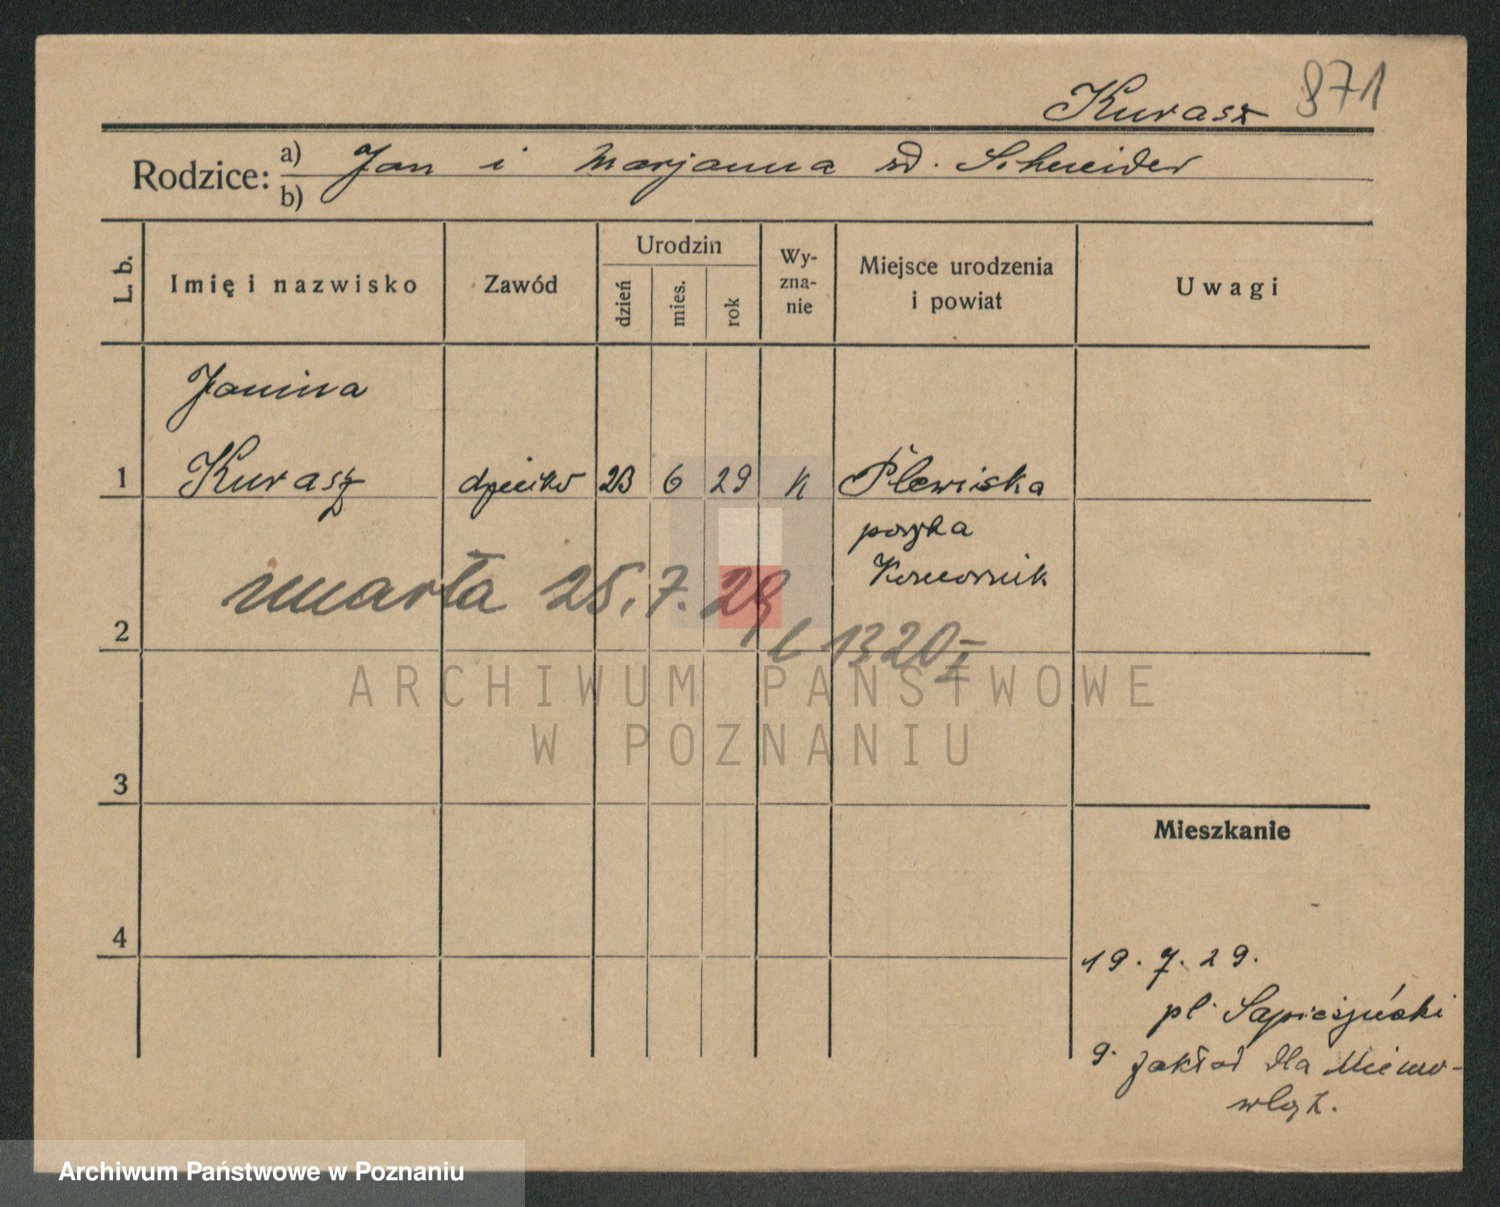 Kurasz 871
Rodzice: a) b) Jan i Marjanna zd. Schneider
L. b.
Imię i nazwisko
Zawód
Urodzin
dzień
mies.
rok
Wy-
zna-
nie
Miejsce urodzenia
i powiat
Uwagi
Janina
1 Kurasz dziecko 23 6 29 K Plewiska
Komornik
umarła 25.7.29
2
1320 I
ARCHIWUM PAŃSTWOWE
W POZNANIU
3
Mieszkanie
4
19. 7. 29.
pl. Sapieżyński
9. Zakład dla Niemo-
wląt.
Archiwum Państwowe w Poznaniu